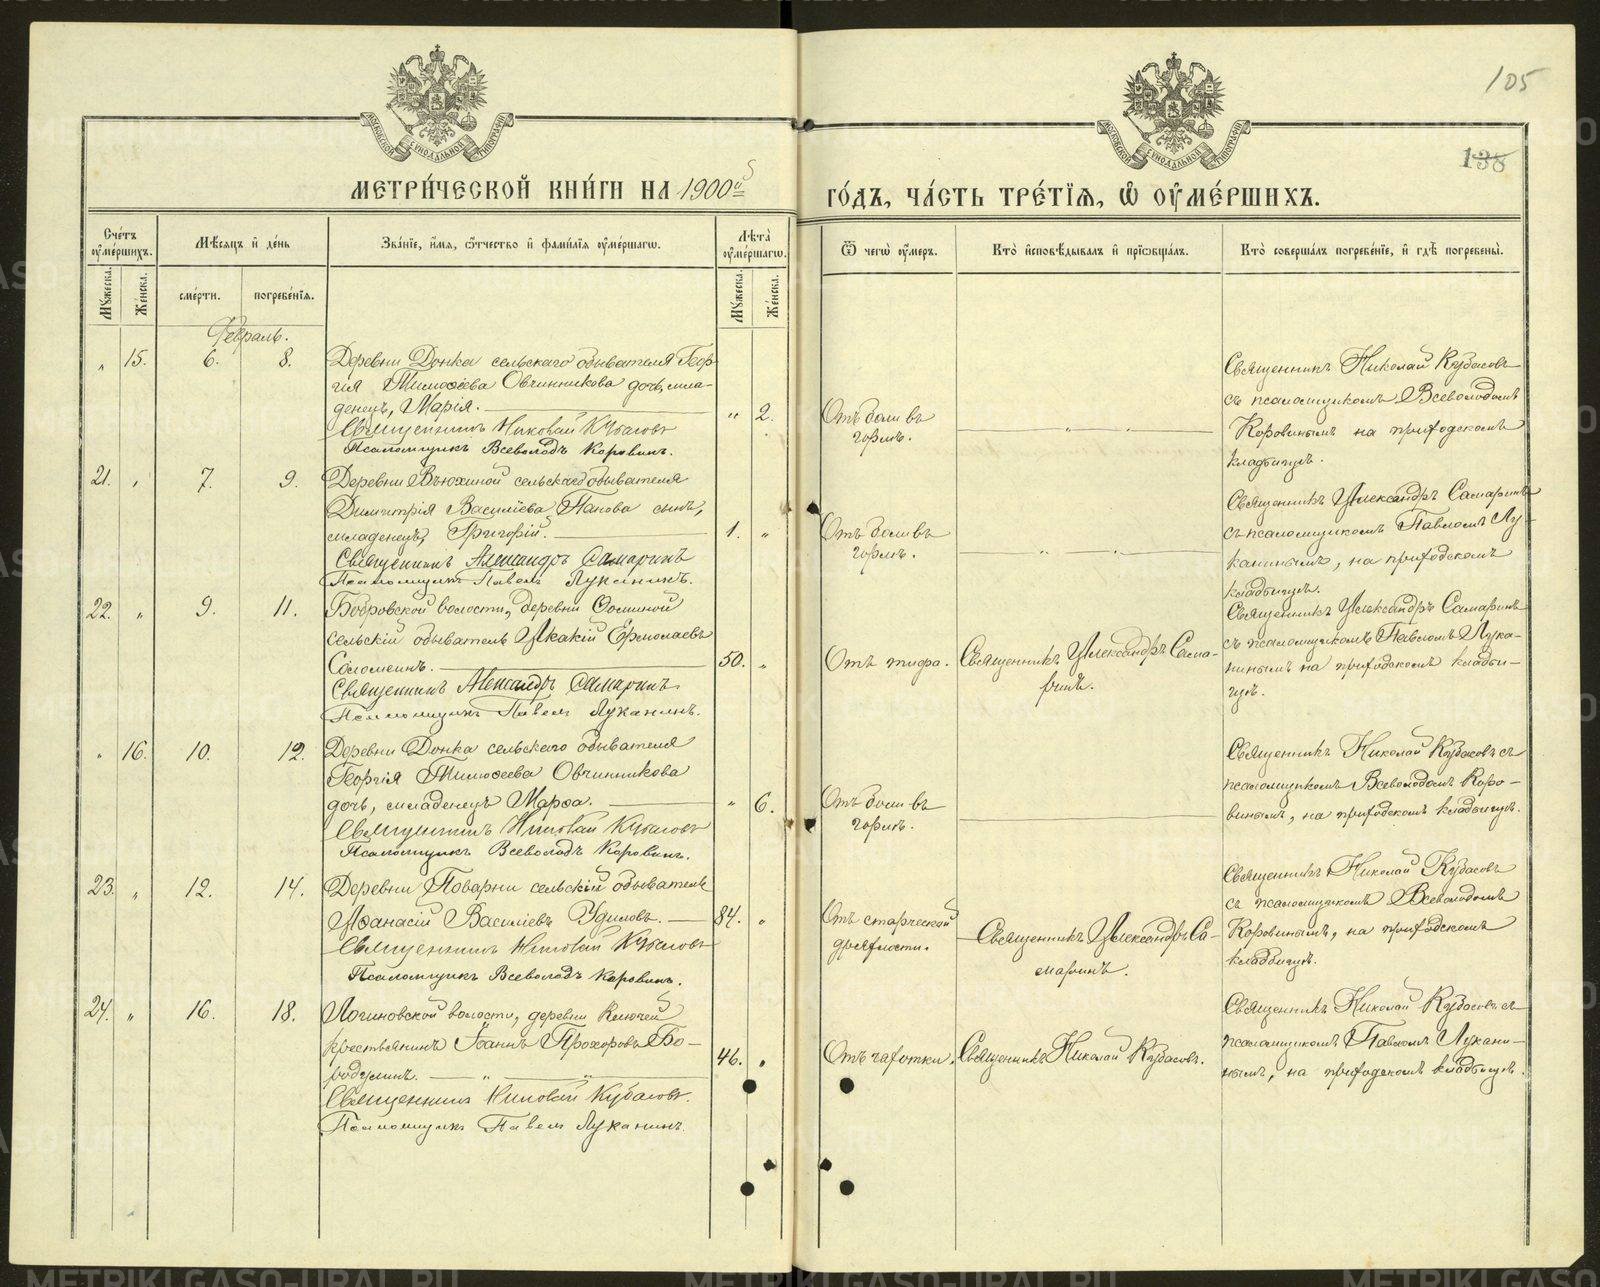 105
138
МЕТРИ́ЧЕСКОЙ КНИ́ГИ НА 1900й
ГО́ДЪ, ЧА́СТЬ ТРЕ́ТЇѦ, Ѡ҆ ОУ҆МЕ́РШИХЪ.
Сче́тъ оу҆ме́ршихъ.
Мѣ́сѧцъ и҆ де́нь
Зва́нїе, и҆́мѧ, ѻ҆́тчество и҆ фами́лїѧ оу҆ме́ршагѡ.
Лѣ́та оу҆ме́ршагѡ.
Ѿ чегѡ̀ оу҆́меръ.
Кто̀ и҆сповѣ́дывалъ и҆ прїѡбща́лъ.
Кто̀ соверша́лъ погребе́нїе, и҆ гдѣ̀ погребены̀.
Мꙋ́жеска.
Же́нска.
сме́рти.
погребе́нїѧ.
Мꙋ́жеска.
Же́нска.
Февраль.
" 15. 6. 8. Деревни Донка сельскаго обывателя Геор-
гія Тимоѳеева Овчинникова дочь, мла-
денецъ, Марія. " 2.
Священникъ Николай Кубасовъ
Псаломщикъ Всеволодъ Коровинъ.
Отъ боли въ
горлѣ.
Священникъ Николай Кубасовъ
съ псаломщикомъ Всеволодомъ
Коровинымъ на приходскомъ
кладбищѣ.
21. " 7. 9. Деревни Вьюхиной сельскаго обывателя
Димитрія Василіева Панова сынъ,
младенецъ, Григорій. 1. "
Священникъ Александръ Самаринъ
Псаломщикъ Павелъ Луканинъ.
Отъ боли въ
горлѣ.
Священникъ Александръ Самаринъ
съ псаломщикомъ Павломъ Лу-
канинымъ, на приходскомъ
кладбищѣ.
22. " 9. 11. Бобровской волости, деревни Ѳоминой
сельскій обыватель Акакій Ермолаевъ
Соломеинъ. 50. "
Священникъ Александръ Самаринъ
Псаломщикъ Павелъ Луканинъ.
Отъ тифа.
Священникъ Александръ Сама-
ринъ.
Священникъ Александръ Самаринъ
съ псаломщикомъ Павломъ Лука-
нинымъ на приходскомъ кладби-
щѣ.
" 16. 10. 12. Деревни Донка сельскаго обывателя
Георгія Тимоѳеева Овчинникова
дочь, младенецъ Марѳа. " 6.
Священникъ Николай Кубасовъ
Псаломщикъ Всеволодъ Коровинъ.
Отъ боли въ
горлѣ.
Священникъ Николай Кубасовъ съ
псаломщикомъ Всеволодомъ Коро-
винымъ, на приходскомъ кладбищѣ.
23. " 12. 14. Деревни Поварни сельскій обыватель
Аѳанасій Василіевъ Удиловъ. 84. "
Священникъ Николай Кубасовъ
Псаломщикъ Всеволодъ Коровинъ.
Отъ старческой
дряхлости.
Священникъ Александръ Са-
маринъ.
Священникъ Николай Кубасовъ
съ псаломщикомъ Всеволодомъ
Коровинымъ, на приходскомъ
кладбищѣ.
24. " 16. 18. Логиновской волости, деревни Ключей
крестьянинъ Іоаннъ Прохоровъ Бо-
родулинъ. 46. "
Священникъ Николай Кубасовъ.
Псаломщикъ Павелъ Луканинъ.
Отъ чахотки.
Священникъ Николай Кубасовъ.
Священникъ Николай Кубасовъ съ
псаломщикомъ Павломъ Лукани-
нымъ, на приходскомъ кладбищѣ.